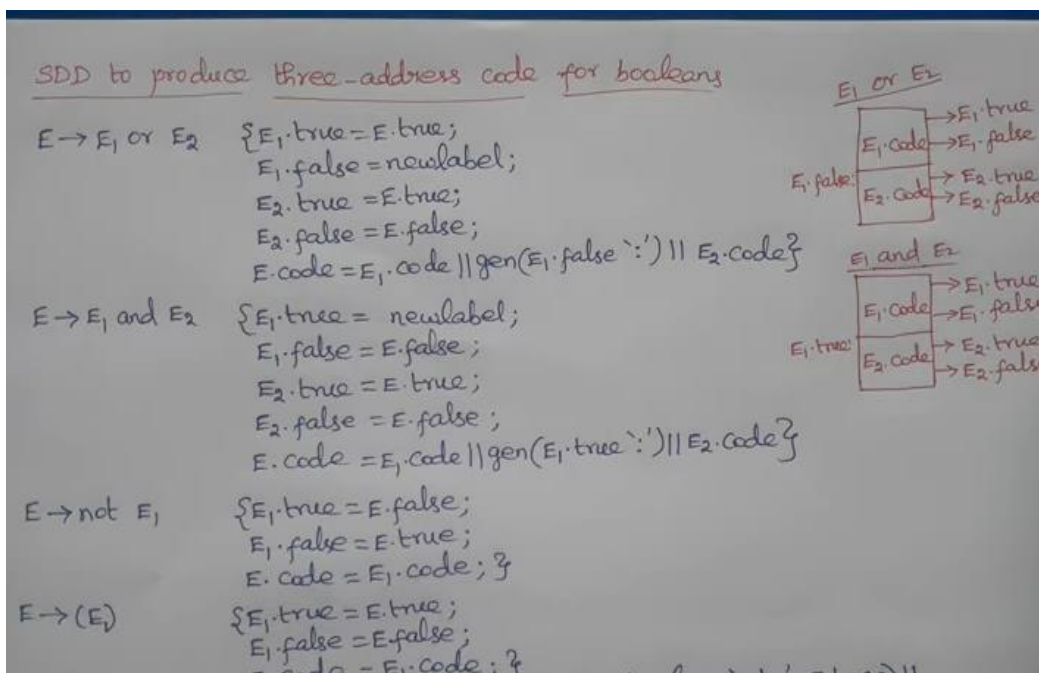 SDD to produce three-address code for booleans
E → E₁ or E₂ {E₁.true = E.true;
E₁.false = newlabel;
E₂.true = E.true;
E₂.false = E.false;
E.code = E₁.code || gen(E₁.false ':') || E₂.code}
E → E₁ and E₂ {E₁.true = newlabel;
E₁.false = E.false;
E₂.true = E.true;
E₂.false = E.false;
E.code = E₁.code || gen(E₁.true ':') || E₂.code}
E → not E₁ {E₁.true = E.false;
E₁.false = E.true;
E.code = E₁.code; }
E → (E₁) {E₁.true = E.true;
E₁.false = E.false;
E₁.code; }
E₁ or E₂
E₁.code → E₁.true
→ E₁.false
E₁.false: E₂.code → E₂.true
→ E₂.false
E₁ and E₂
E₁.code → E₁.true
→ E₁.fals
E₁.true: E₂.code → E₂.true
→ E₂.fals